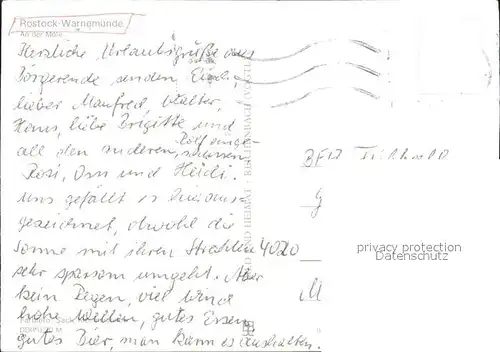 Rostock-Warnemünde
An der Mole
Herzliche Urlaubsgrüße aus
Börgerende senden Euch,
lieber Manfred, Walter,
Hans, liebe Brigitte und
all den anderen,
Rosi, Om und Heidi.
Uns gefällt es hier aus-
gezeichnet, obwohl die
Sonne mit ihren Strahlen
sehr sparsam umgeht. Aber
kein Regen, viel Wind
hohe Wellen, gutes Essen,
gutes Bier, man kann es aushalten.
BFW
G
4020
M
BILD UND HEIMAT REICHENBACH
privacy protection
Datenschutz